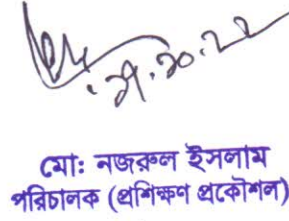 মোঃ নজরুল ইসলাম
পরিচালক (প্রশিক্ষণ প্রকৌশল)